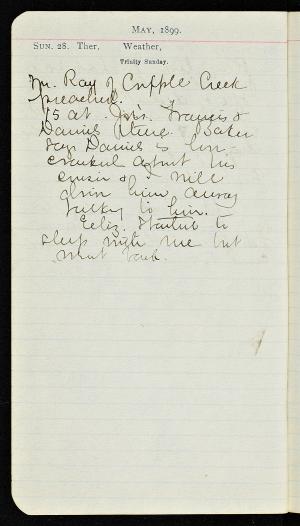 MAY, 1899.
SUN. 28. Ther. Weather,
Trinity Sunday.
Mr. Ray of Cripple Creek
preached.
15 at Jos. Francis &
Daniels Baker
say Daniels is
his
cousin & I will
him away
talky to him.
Eliz. started to
sleep with me but
went back.